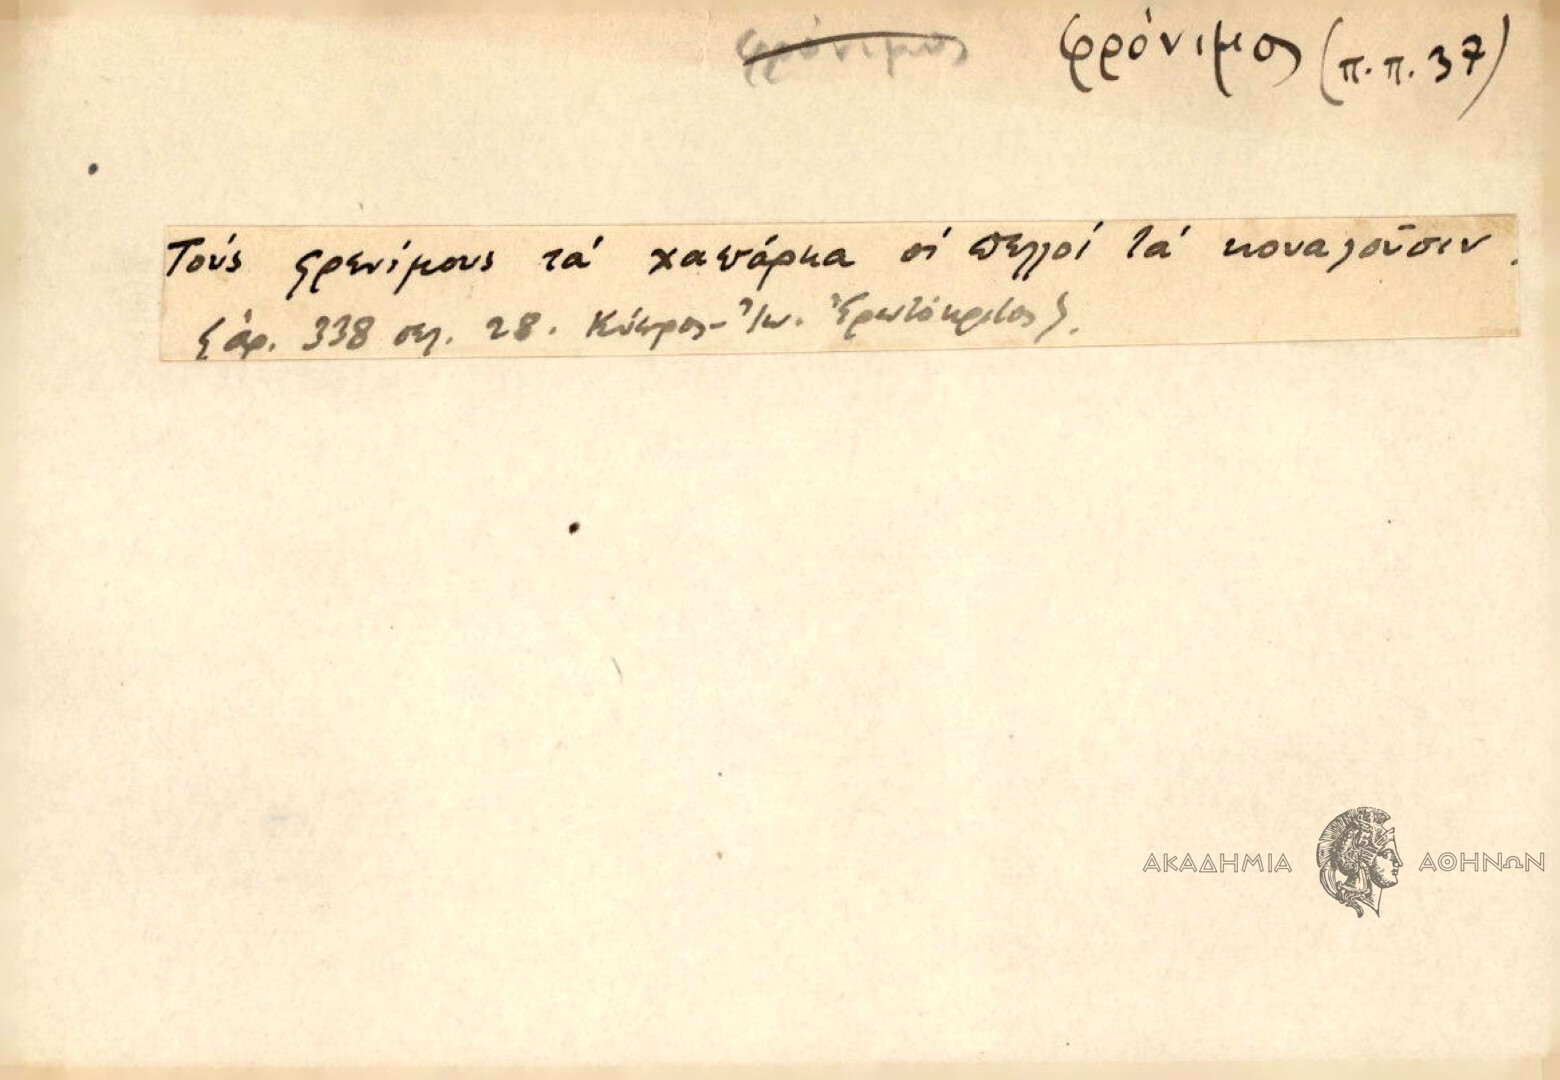 φρόνιμος φρόνιμος (π.π. 37)
Τούς φρενίμους τά χαπάρκα οἱ πελλοί τά κουαλοῦσιν.
{ ἀρ. 338 σελ. 28. Κύπρος - Ἰω. Ἐρωτόκριτος }.
ΑΚΑΔΗΜΙΑ ΑΘΗΝΩΝ